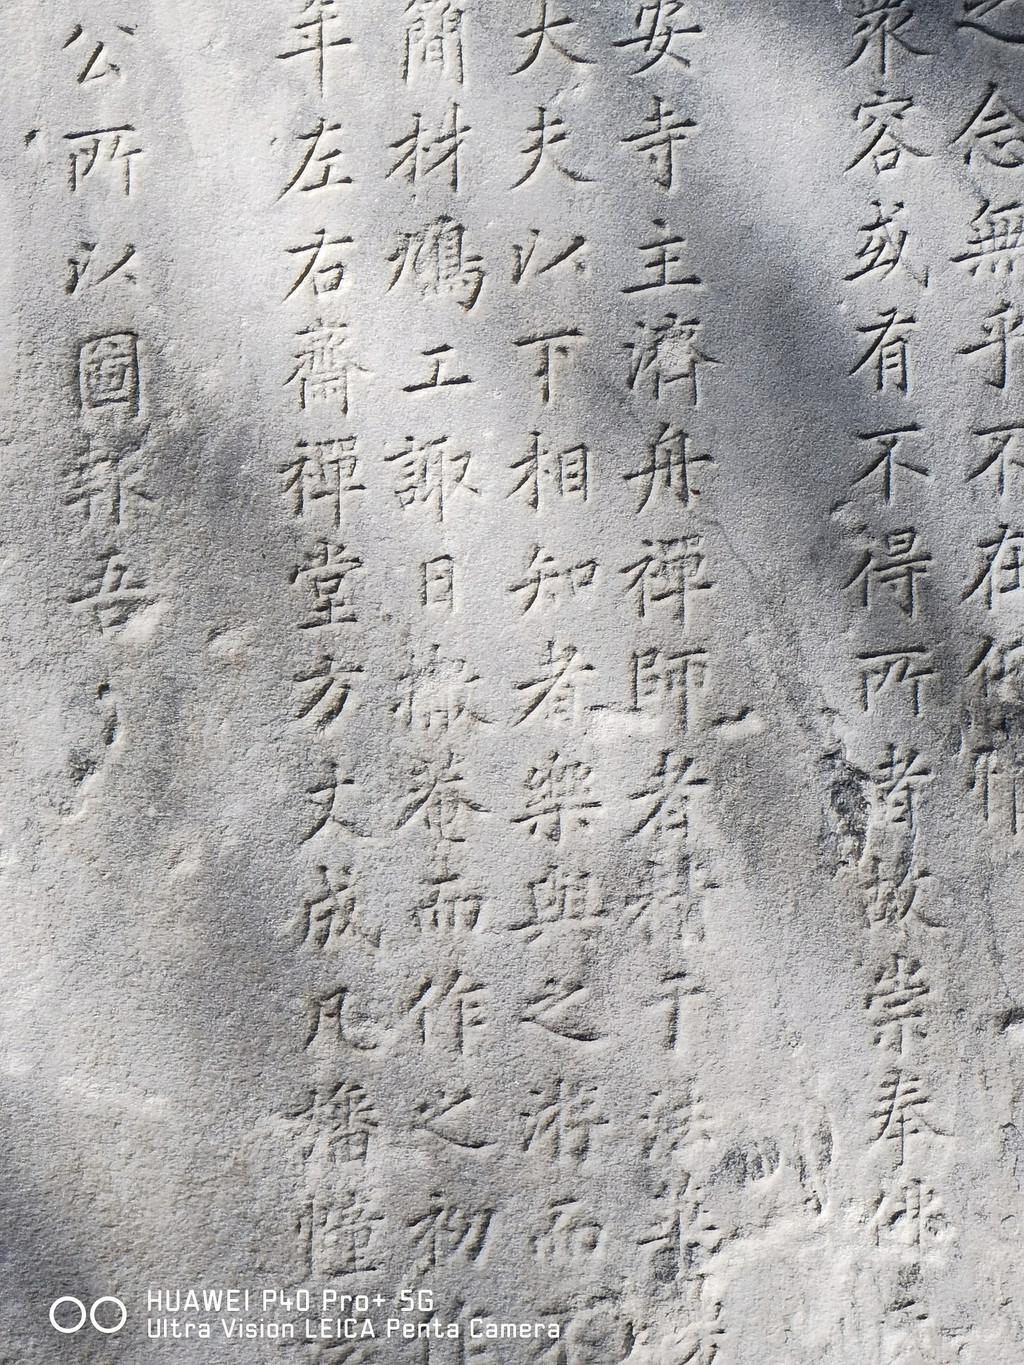 之念無乎不在
衆容或有不得所者歟崇奉佛
安寺主濟舟禪師者于法
大夫以下相知者樂與之游而
簡材鳩工諏日撤菴而作之初
年左右齋禪堂方丈成凡旛幢
公所以圖報吾
HUAWEI P40 Pro+ 5G
Ultra Vision LEICA Penta Camera